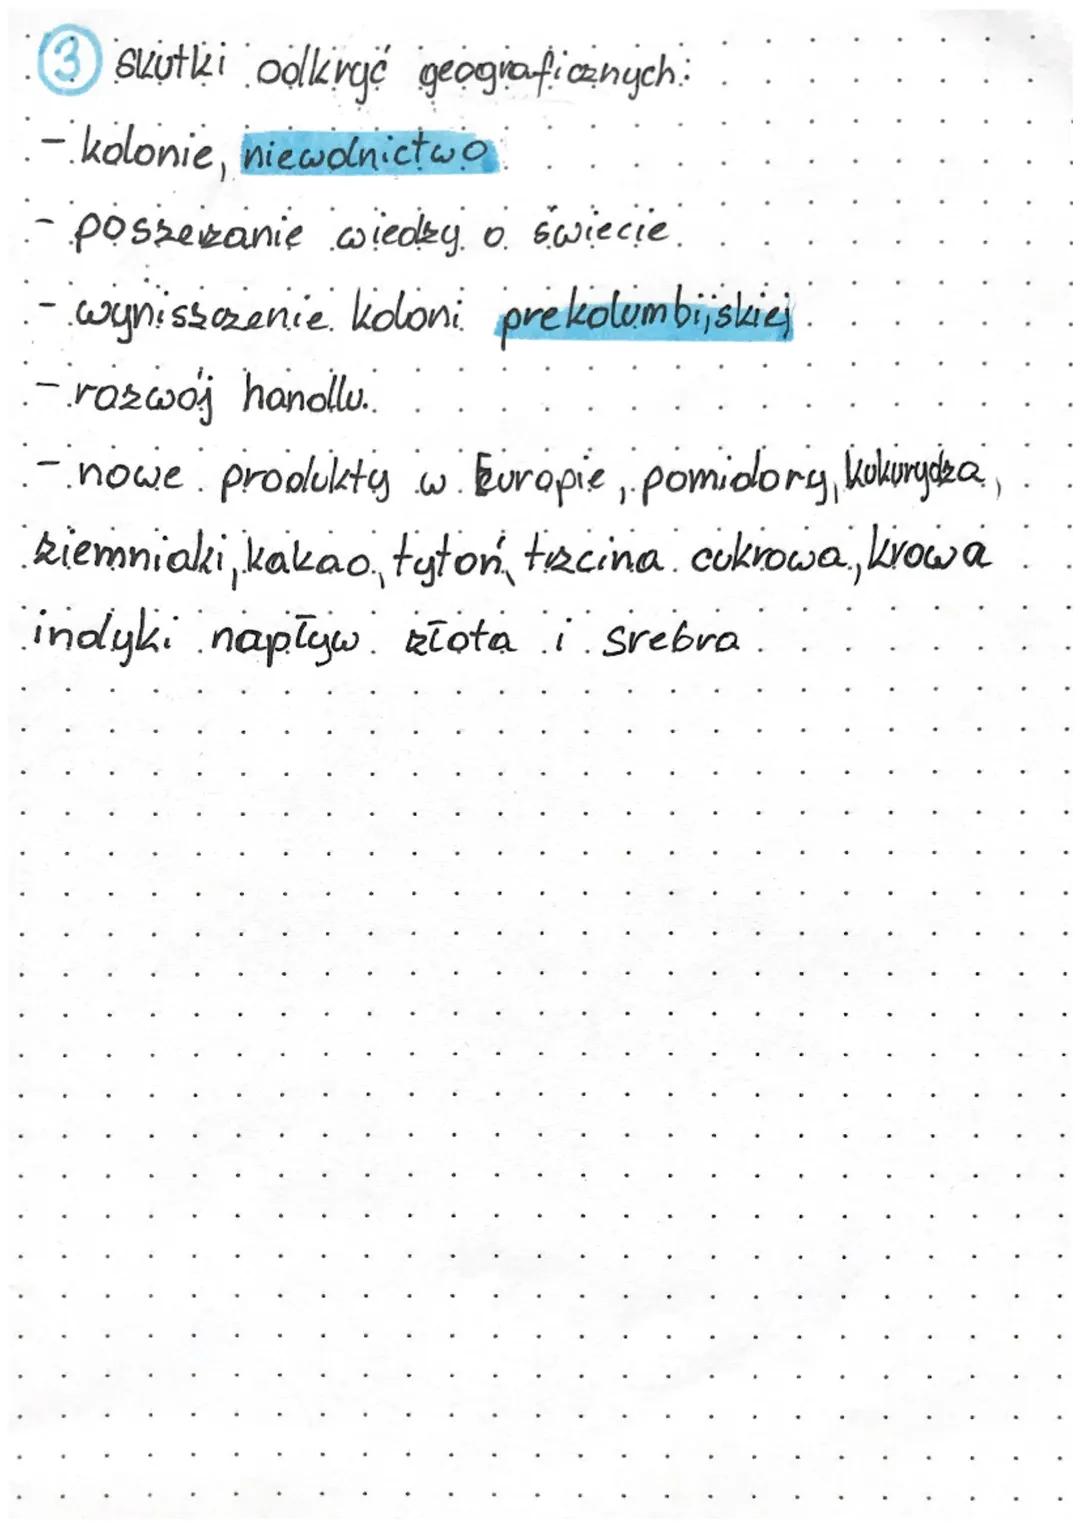 ③ skutki odkryć geograficznych:
- kolonie, niewolnictwo
- poszerzanie wiedzy o świecie
- wyniszczenie koloni prekolumbijskiej
- rozwój handlu.
- nowe produkty w Europie, pomidory, kukurydza,
ziemniaki, kakao, tytoń, trzcina cukrowa, krowa
indyki napływ złota i srebra